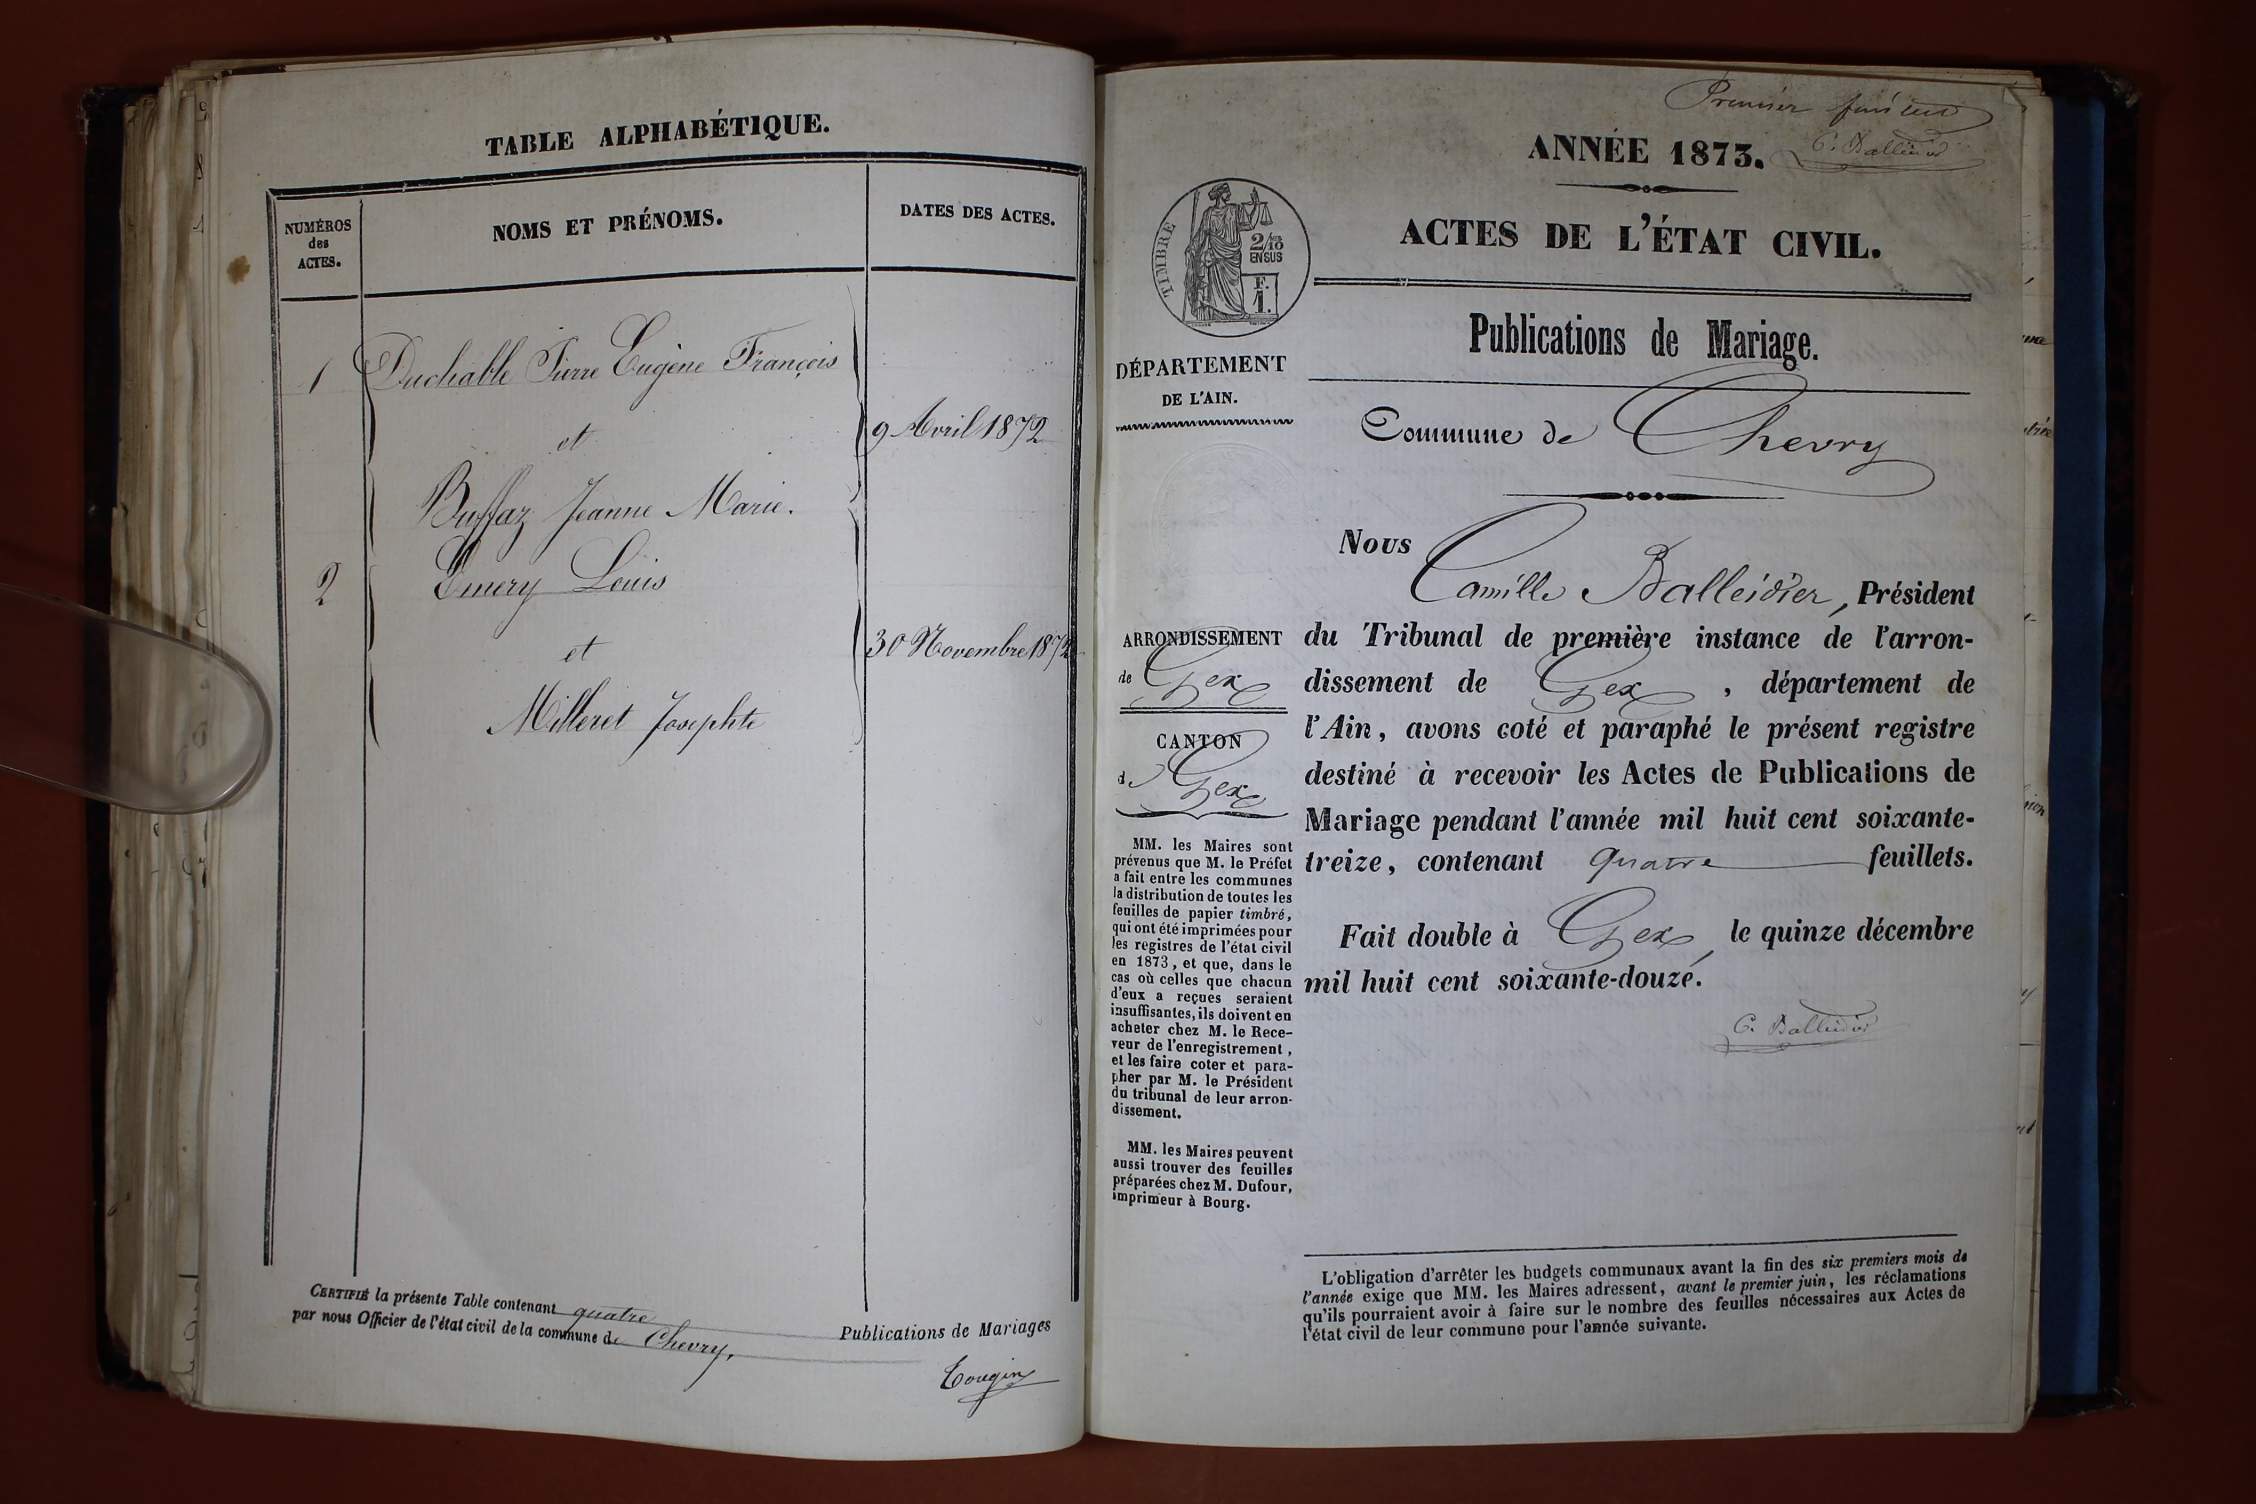 TABLE ALPHABÉTIQUE.
NUMÉROS
des
ACTES.
NOMS ET PRÉNOMS.
DATES DES ACTES.
1 Duchable Pierre Eugène François
et
9 Avril 1872
Buffaz Jeanne Marie.
2 Emery Louis
et
30 Novembre 1872
Milleret Josephte
CERTIFIÉ la présente Table contenant quatre Publications de Mariages
par nous Officier de l'état civil de la commune de Chevry.
Tougin
Premier feuillet
C. Balleidier
ANNÉE 1873.
ACTES DE L'ÉTAT CIVIL.
TIMBRE
2/10
EN SUS
F.
1.
Publications de Mariage.
DÉPARTEMENT
DE L'AIN.
Commune de Chevry
ARRONDISSEMENT
de Gex
CANTON
de Gex
MM. les Maires sont
prévenus que M. le Préfet
a fait entre les communes
la distribution de toutes les
feuilles de papier timbré,
qui ont été imprimées pour
les registres de l'état civil
en 1873, et que, dans le
cas où celles que chacun
d'eux a reçues seraient
insuffisantes, ils doivent en
acheter chez M. le Rece-
veur de l'enregistrement,
et les faire coter et para-
pher par M. le Président
du tribunal de leur arron-
dissement.
MM. les Maires peuvent
aussi trouver des feuilles
préparées chez M. Dufour,
imprimeur à Bourg.
Nous
Camille Balleidier, Président
du Tribunal de première instance de l'arron-
dissement de Gex, département de
l'Ain, avons coté et paraphé le présent registre
destiné à recevoir les Actes de Publications de
Mariage pendant l'année mil huit cent soixante-
treize, contenant quatre feuillets.
Fait double à Gex, le quinze décembre
mil huit cent soixante-douze.
C. Balleidier
L'obligation d'arrêter les budgets communaux avant la fin des six premiers mois de
l'année exige que MM. les Maires adressent, avant le premier juin, les réclamations
qu'ils pourraient avoir à faire sur le nombre des feuilles nécessaires aux Actes de
l'état civil de leur commune pour l'année suivante.